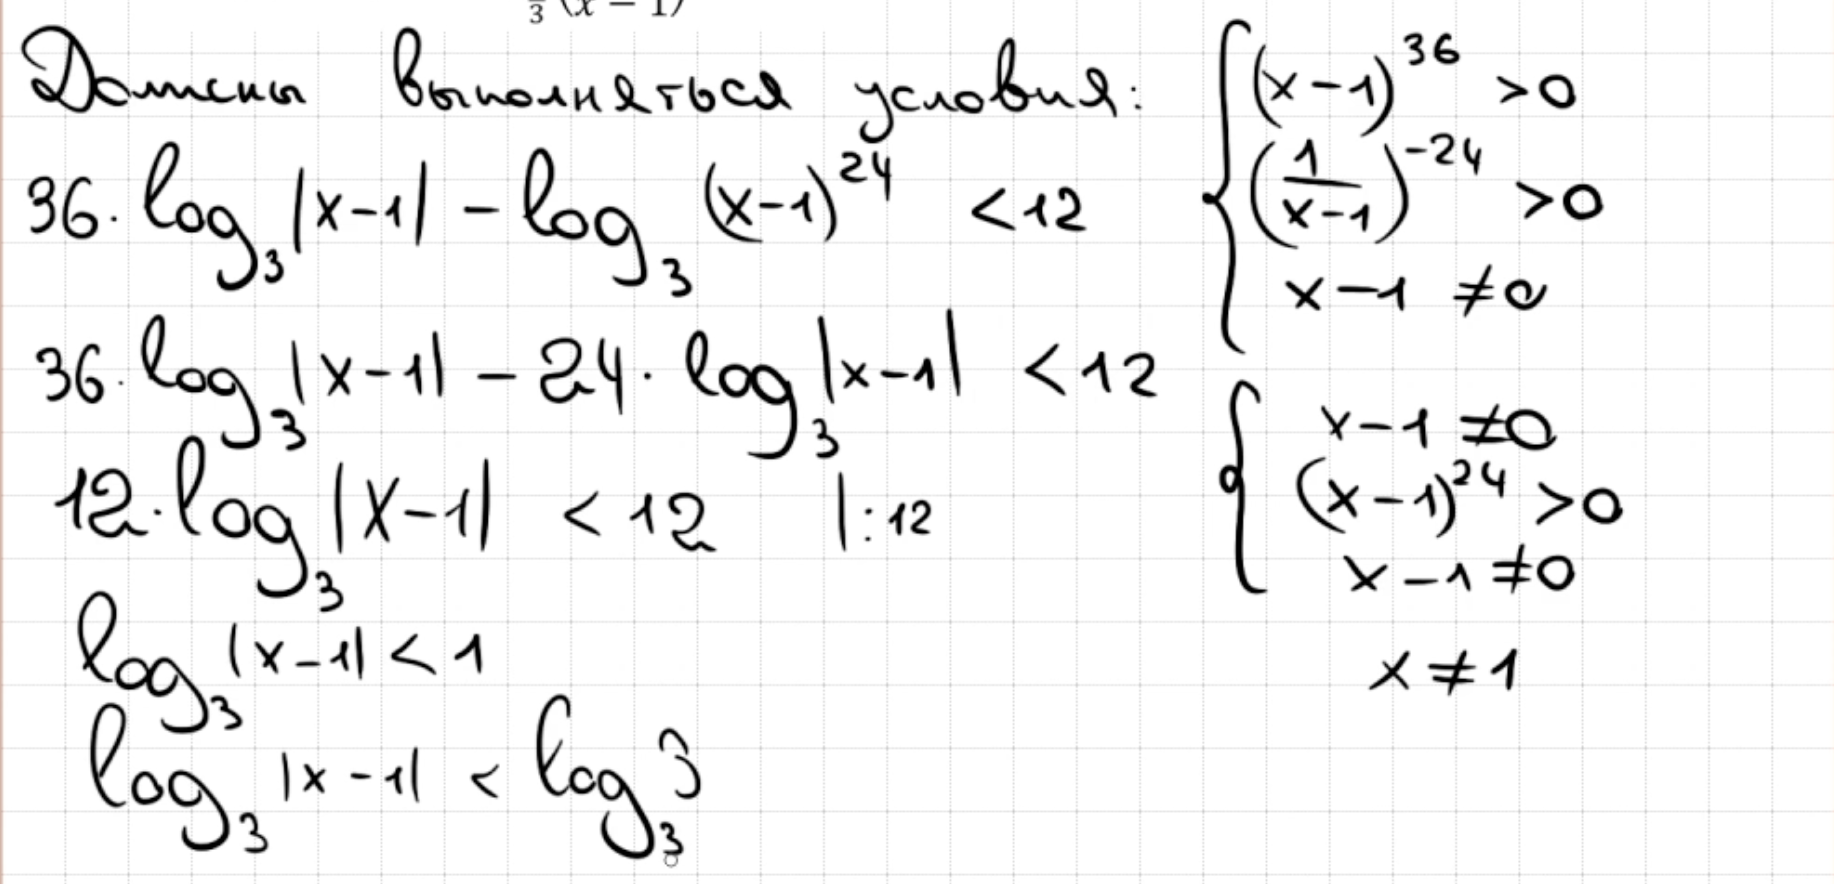 3 (x − 1)
Должны выполняться условия:
36·log₃|x−1| − log₃(x−1)²⁴ < 12
36·log₃|x−1| − 24·log₃|x−1| < 12
12·log₃|x−1| < 12 |:12
log₃|x−1| < 1
log₃|x−1| < log₃3
{ (x−1)³⁶ > 0
(1/(x−1))⁻²⁴ > 0
x−1 ≠ 0
{ x−1 ≠ 0
(x−1)²⁴ > 0
x−1 ≠ 0
x ≠ 1